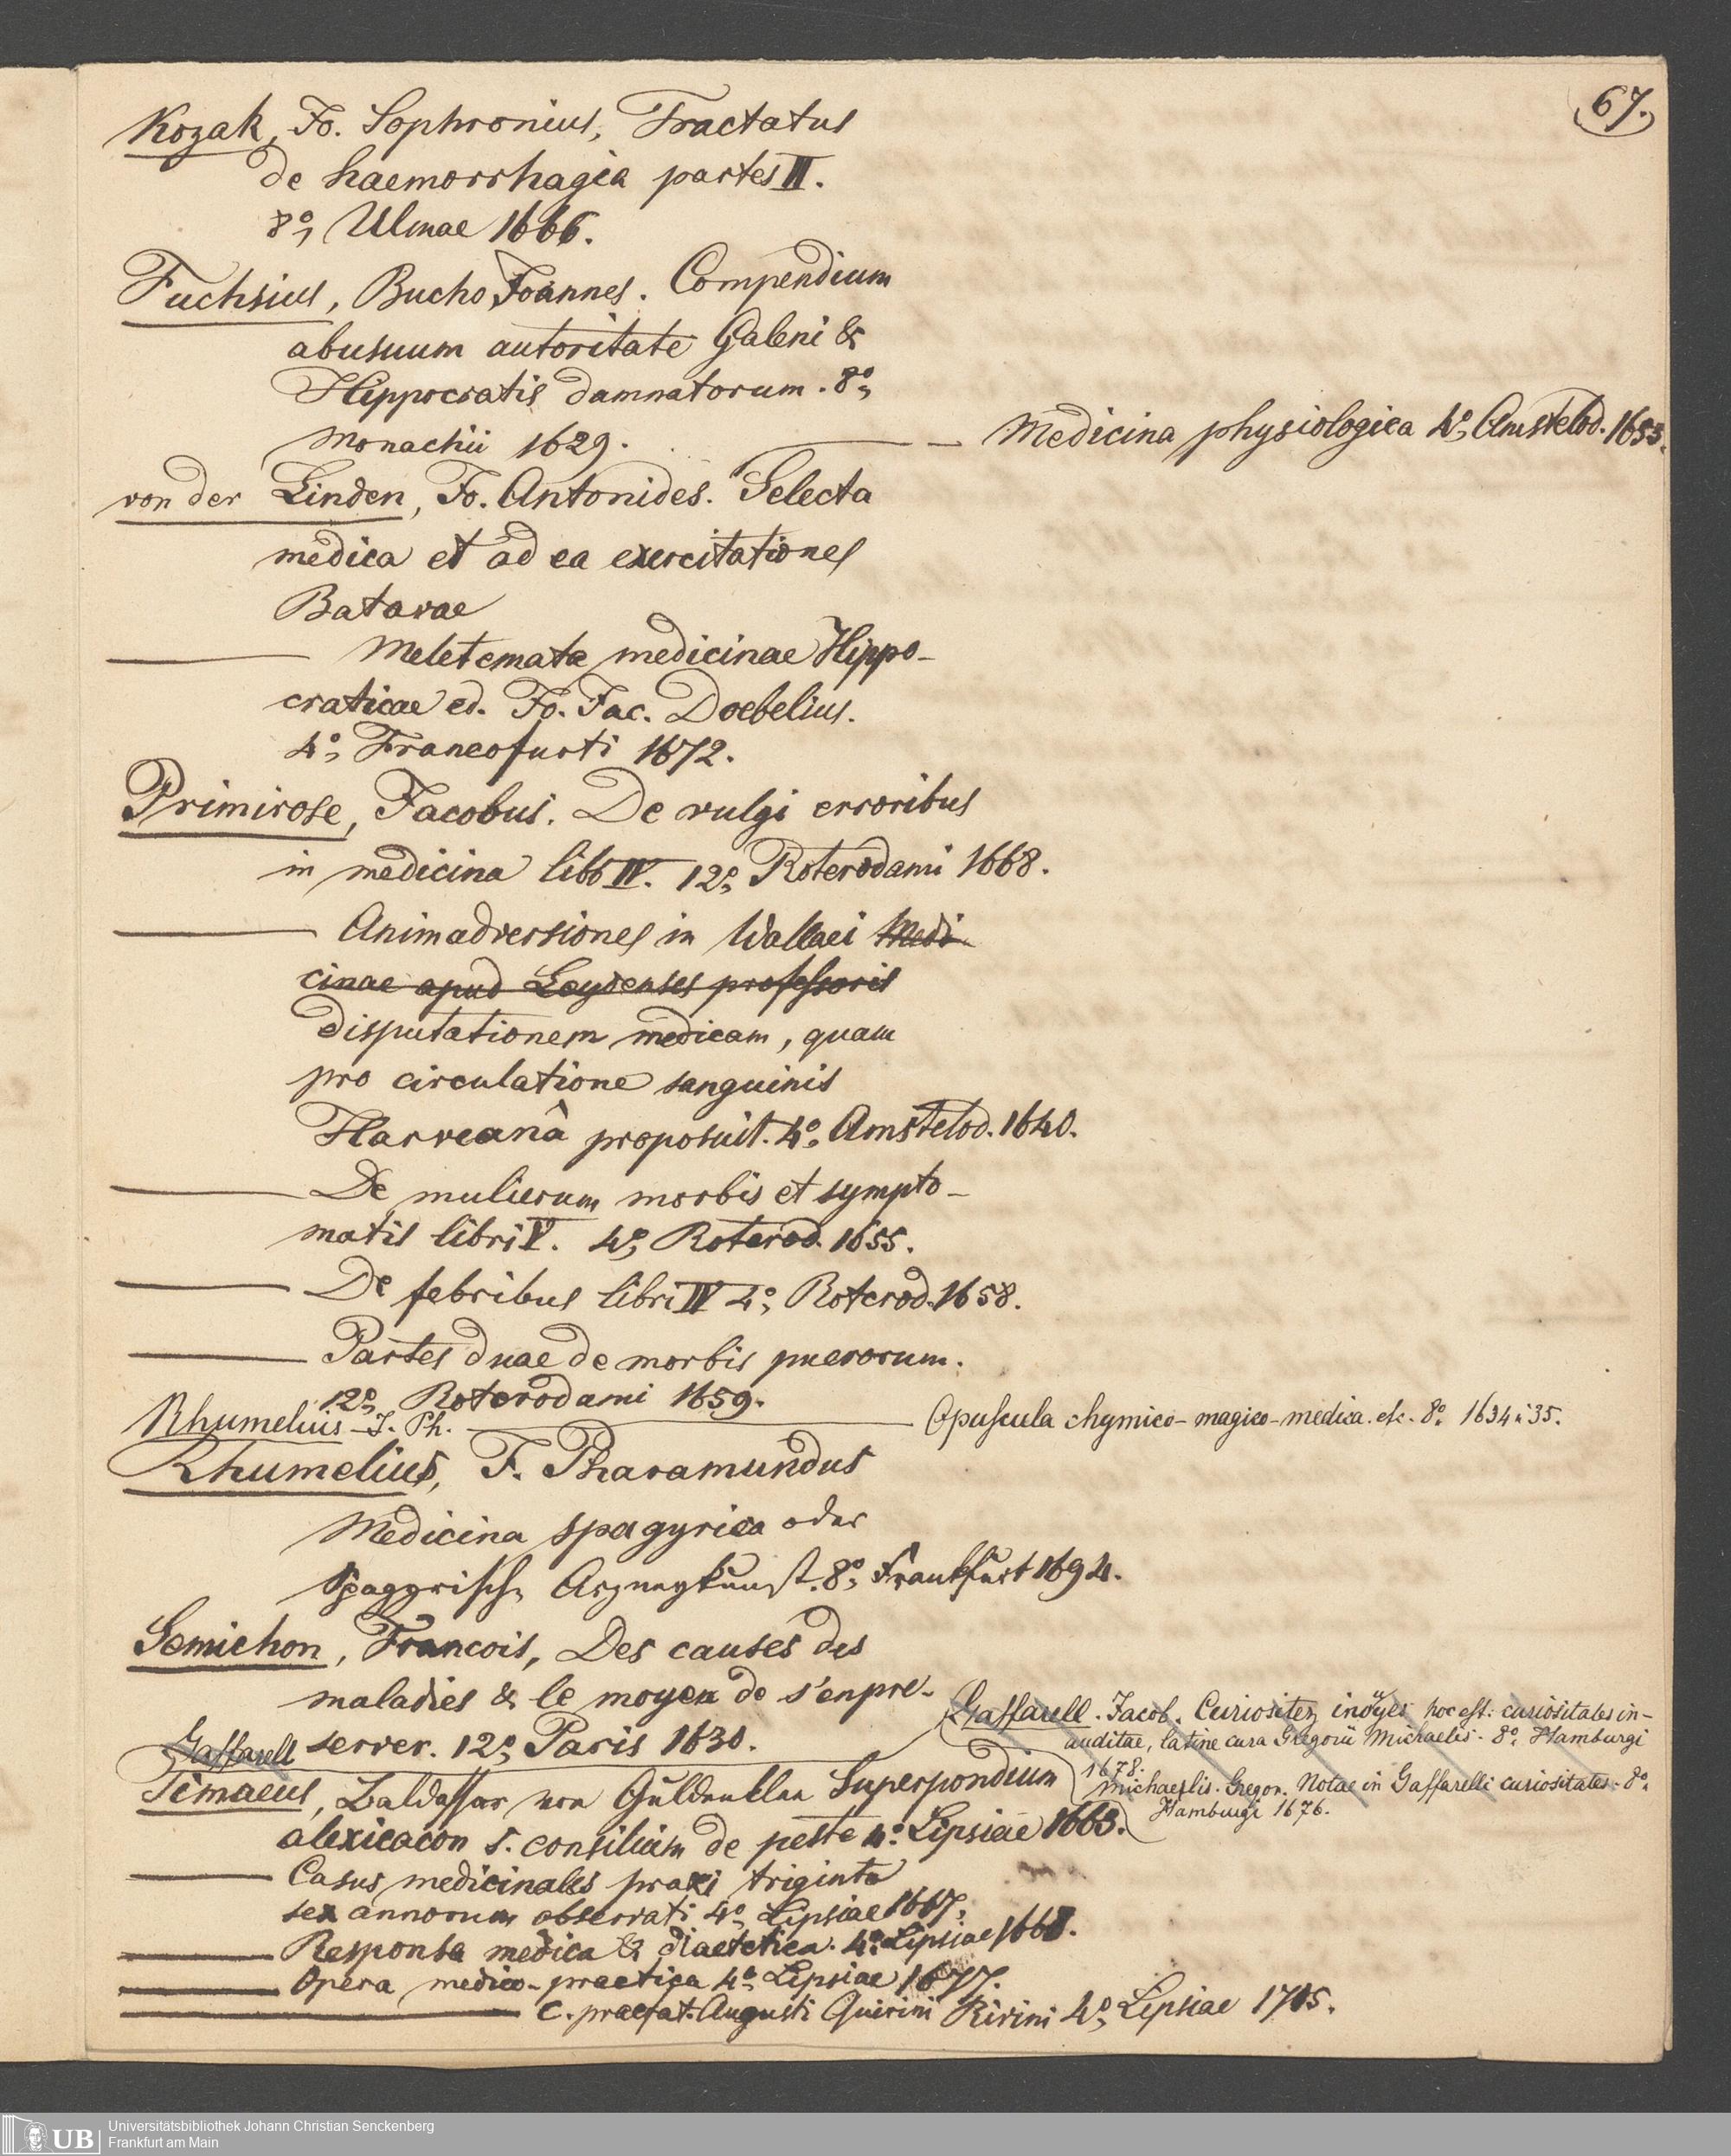 67.
Kozak, Jo. Sophronius, Tractatus
de haemorrhagia partes II.
8°, Ulmae 1666.
Fuchsius, Bucho Joannes. Compendium
abusuum autoritate Galeni &
Hippocratis damnatorum. 8°,
Monachii 1629.
— Medicina physiologica 4°, Amstelod. 1653.
von der Linden, Jo. Antonides. Selecta
medica et ad ea exercitationes
Batavae
— Meletemata medicinae Hippo-
craticae ed. Jo. Jac. Doebelius.
4°, Francofurti 1672.
Primirose, Jacobus. De vulgi erroribus
in medicina libb IV. 12°, Roterodami 1668.
— Animadversiones in Wallaei Medi-
cinae apud Leydenses professoris
disputationem medicam, quam
pro circulatione sanguinis
Harveanâ proposuit. 4°, Amstelod. 1640.
— De mulierum morbis et sympto-
matis libri V. 4°, Roterod. 1655.
— De febribus libri IV 4°, Roterod. 1658.
— Partes duae de morbis puerorum.
12°, Roterodami 1659.
Rhumelius J. Ph. — Opuscula chymico-magico-medica. etc. 8°. 1634 u 35.
Rhumelius, F. Pharamundus
Medicina spagyrica oder
Spagyrische Arzneykunst. 8°, Frankfurt 1694.
Semichon, Francois, Des causes des
maladies & le moyen de s'enpre-
server. 12°, Paris 1630.
Gaffarell
Gaffarell. Jacob. Curiositez inoÿes hoc est: curiositates in-
auditae, latine cura Gregorii Michaelis. 8°. Hamburgi
1678.
Michaelis. Gregor. Notae in Gaffarelli curiositates. 8°.
Hamburgi 1676.
Timaeus, Baldassar von Güldenklee Superpondium
alexicacon s. consilium de peste 4°. Lipsiae 1663.
— Casus medicinales praxi triginta
sex annorum observati 4°, Lipsiae 1667,
— Responsa medica & diaetetica. 4°, Lipsiae 1668.
— Opera medico-practica 4°, Lipsiae 1677.
— c. praefat. Augusti Quirini Rivini 4°, Lipsiae 1715.
Universitätsbibliothek Johann Christian Senckenberg
Frankfurt am Main
UB